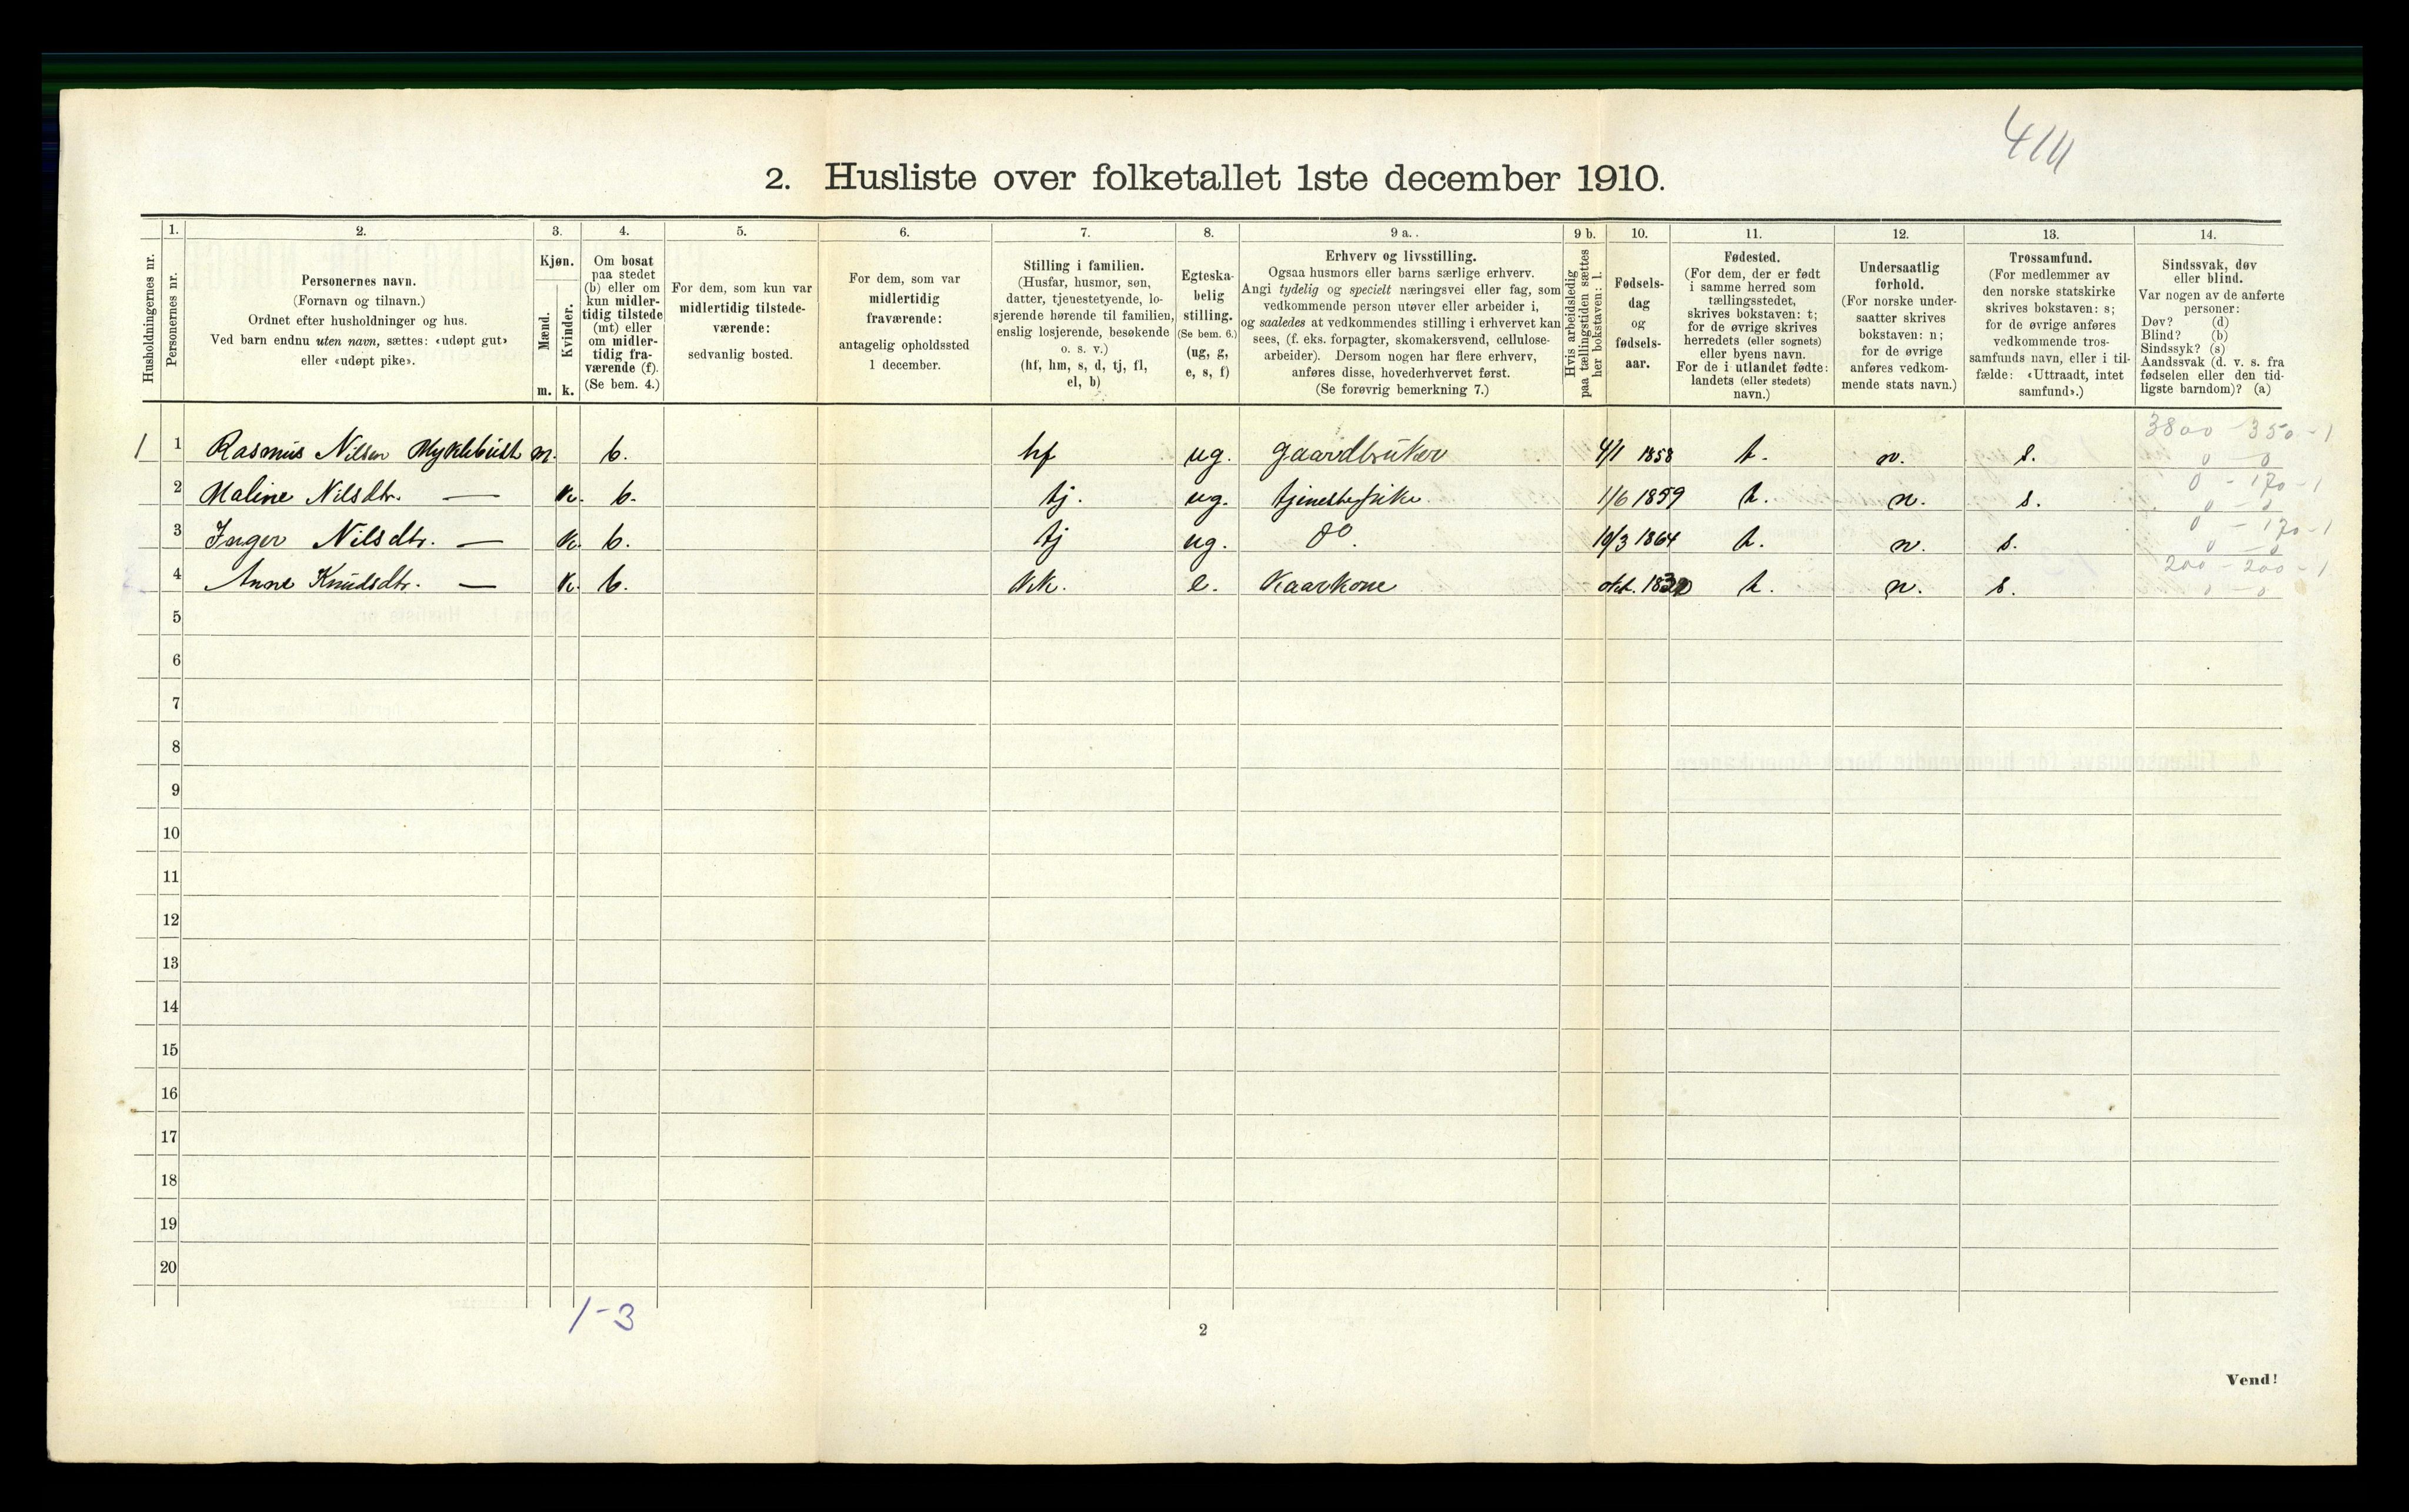 414
2. Husliste over folketallet 1ste december 1910.
Husholdningernes nr.
1.
Personernes nr.
2.
Personernes navn.
(Fornavn og tilnavn.)
Ordnet efter husholdninger og hus.
Ved barn endnu uten navn, sættes: «udøpt gut»
eller «udøpt pike».
3.
Kjøn.
Mænd.
Kvinder.
m.
k.
4.
Om bosat
paa stedet
(b) eller om
kun midler-
tidig tilstede
(mt) eller
om midler-
tidig fra-
værende (f).
(Se bem. 4.)
5.
For dem, som kun var
midlertidig tilstede-
værende:
sedvanlig bosted.
6.
For dem, som var
midlertidig
fraværende:
antagelig opholdssted
1 december.
7.
Stilling i familien.
(Husfar, husmor, søn,
datter, tjenestetyende, lo-
sjerende hørende til familien,
enslig losjerende, besøkende
o. s. v.)
(hf, hm, s, d, tj, fl,
el, b)
8.
Egteska-
belig
stilling.
(Se bem. 6.)
(ug, g,
e, s, f)
9 a.
Erhverv og livsstilling.
Ogsaa husmors eller barns særlige erhverv.
Angi tydelig og specielt næringsvei eller fag, som
vedkommende person utøver eller arbeider i,
og saaledes at vedkommendes stilling i erhvervet kan
sees, (f. eks. forpagter, skomakersvend, cellulose-
arbeider). Dersom nogen har flere erhverv,
anføres disse, hovederhvervet først.
(Se forøvrig bemerkning 7.)
9 b.
Hvis arbeidsledig
paa tællingstiden sættes
her bokstaven: l.
10.
Fødsels-
dag
og
fødsels-
aar.
11.
Fødested.
(For dem, der er født
i samme herred som
tællingsstedet,
skrives bokstaven: t;
for de øvrige skrives
herredets (eller sognets)
eller byens navn.
For de i utlandet fødte:
landets (eller stedets)
navn.)
12.
Undersaatlig
forhold.
(For norske under-
saatter skrives
bokstaven: n;
for de øvrige
anføres vedkom-
mende stats navn.)
13.
Trossamfund.
(For medlemmer av
den norske statskirke
skrives bokstaven: s;
for de øvrige anføres
vedkommende tros-
samfunds navn, eller i til-
fælde: «Uttraadt, intet
samfund».)
14.
Sindssvak, døv
eller blind.
Var nogen av de anførte
personer:
Døv? (d)
Blind? (b)
Sindssyk? (s)
Aandssvak (d. v. s. fra
fødselen eller den tid-
ligste barndom)? (a)
1 1 Rasmus Nilsen Myklebust m. b. hf ug. gaardbruker 4/1 1858 t. n. s. 3800 - 350 - 1
0 - 0
2 Maline Nilsdtr. — k. b. tj. ug. tjenestepike 1/6 1859 t. n. s. 0 - 170 - 1
0 - 0
3 Inger Nilsdtr. — k. b. tj ug. do. 19/3 1864 t. n. s. 0 - 170 - 1
0 - 0
4 Anne Knudsdtr. — k. b. kk. e. Kaarkone t. n. s. 200 - 200 - 1
0 - 0
5
6
7
8
9
10
11
12
13
14
15
16
17
18
19
20
1-3
2
Vend!